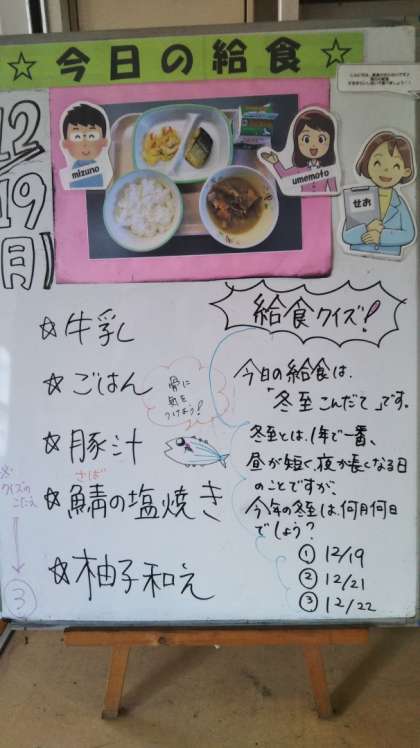 ☆今日の給食☆
12
19
(月)
mizuno
umemoto
せお
☆牛乳
☆ごはん
☆豚汁
さば
☆鯖の塩焼き
☆柚子和え
骨に
気を
つけよう!
給食クイズ!
今日の給食は、
「冬至こんだて」です。
冬至とは、1年で一番、
昼が短く、夜が長くなる日
のことですが、
今年の冬至は、何月何日
でしょう?
① 12/19
② 12/21
③ 12/22
クイズの
こたえ
③